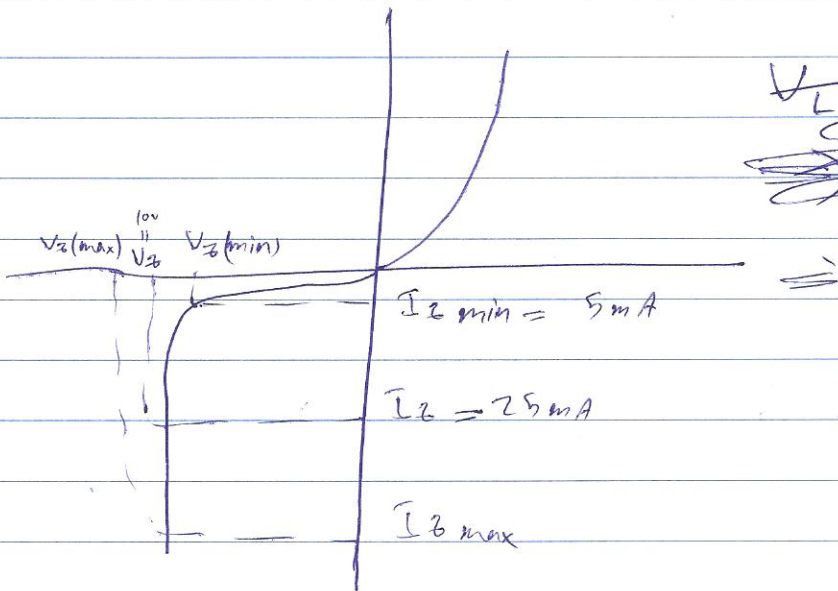 V
L
10v
=
Vz(max) Vz Vz(min)
Iz min = 5mA
Iz = 25mA
Iz max